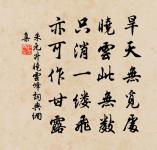 旱天無覓處
曉雲此無數
只消一缕飛
亦可作甘露
朱元升曉雲峰詞典網
集